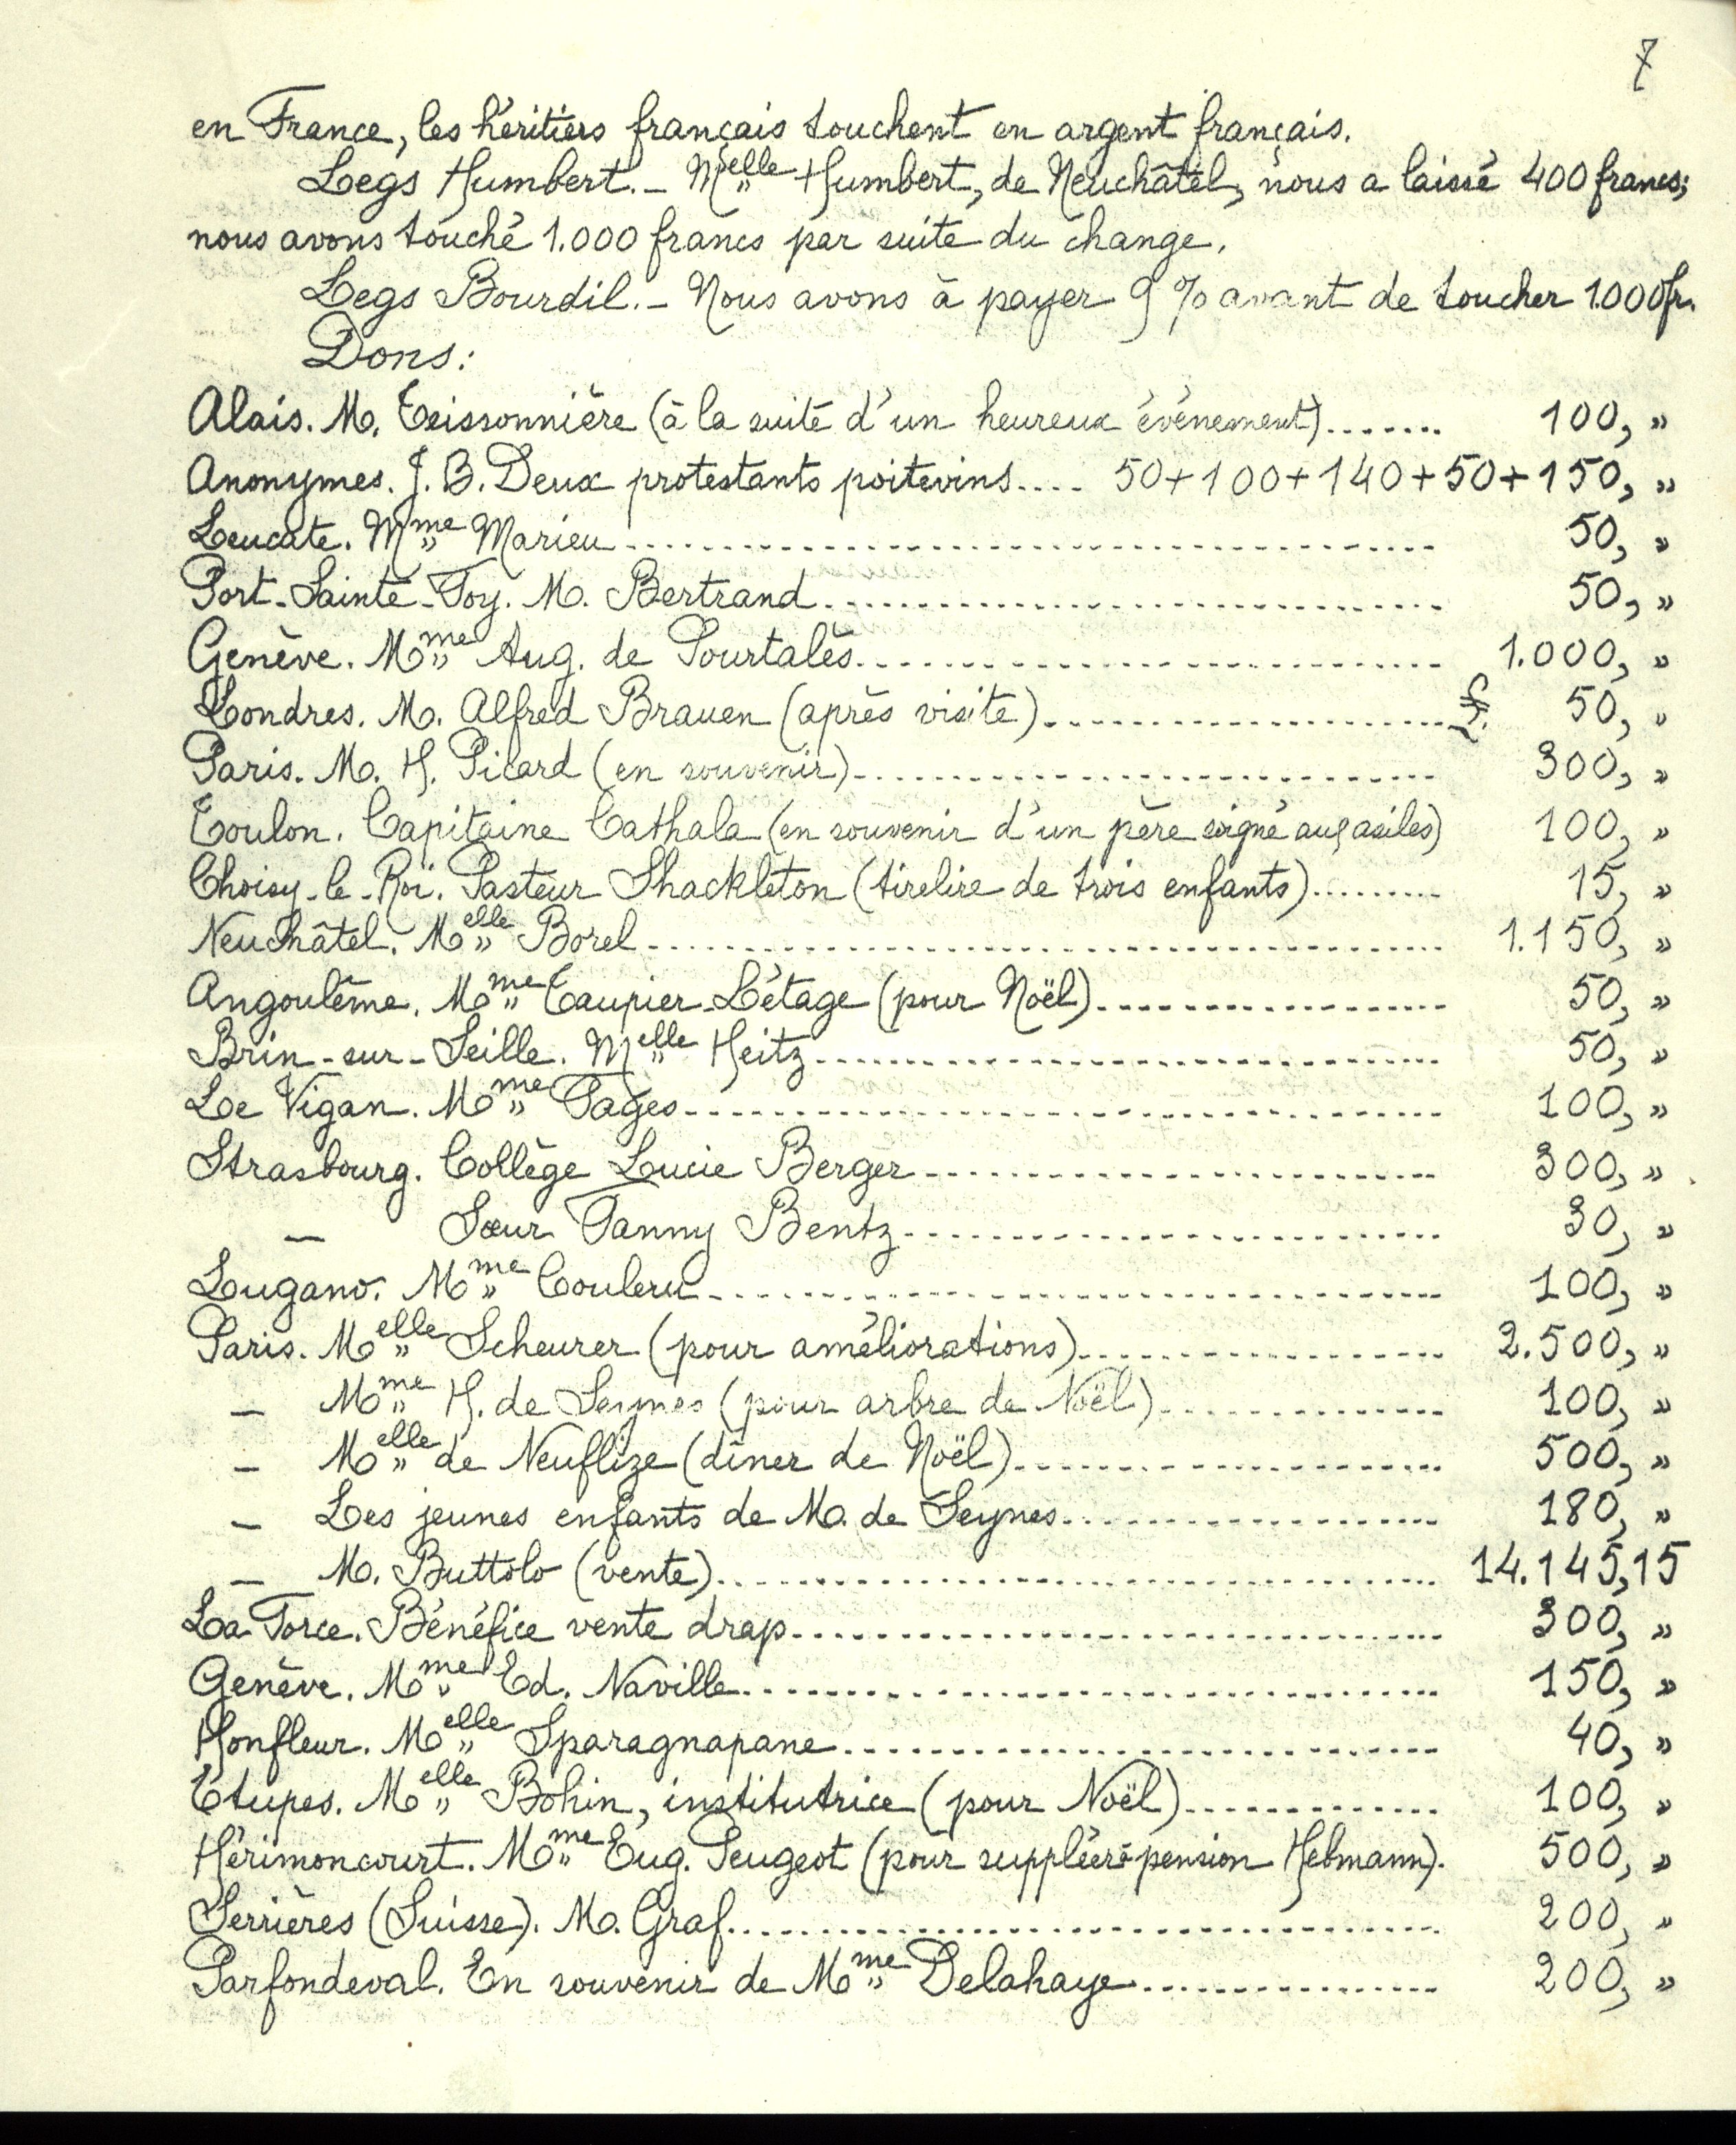 7
en France, les héritiers français touchent en argent français.
Legs Humbert. - Melle Humbert, de Neuchâtel, nous a laissé 400 francs;
nous avons touché 1.000 francs par suite du change.
Legs Bourdil. - Nous avons à payer 9 % avant de toucher 1.000 fr.
Dons:
Alais. M. Teissonnière (à la suite d'un heureux événement)........ 100, "
Anonymes. J. B. Deux protestants poitevins.... 50+100+140+50+150, "
Leucate. Mme Marieu........ 50, "
Port-Sainte-Foy. M. Bertrand........ 50, "
Genève. Mme Aug. de Pourtalès........ 1.000, "
Londres. M. Alfred Brauen (après visite)........ 50, "
Paris. M. H. Picard (en souvenir)........ 300, "
Toulon. Capitaine Cathala (en souvenir d'un père soigné aux asiles) 100, "
Choisy-le-Roi. Pasteur Shackleton (tirelire de trois enfants)........ 15, "
Neuchâtel. Melle Borel........ 1.150, "
Angoulême. Mme Taupier-Létage (pour Noël)........ 50, "
Brin-sur-Seille. Melle Heitz........ 50, "
Le Vigan. Mme Pagès........ 100, "
Strasbourg. Collège Lucie Berger........ 300, "
— Sœur Fanny Bentz........ 30, "
Lugano. Mme Couleru........ 100, "
Paris. Melle Scheurer (pour améliorations)........ 2.500, "
— Mme H. de Seynes (pour arbre de Noël)........ 100, "
— Melle de Neuflize (dîner de Noël)........ 500, "
— Les jeunes enfants de M. de Seynes........ 180, "
— M. Buttolo (vente)........ 14.145,15
La Force. Bénéfice vente drap........ 300, "
Genève. Mme Ed. Naville........ 150, "
Honfleur. Melle Sparagnapane........ 40, "
Etupes. Melle Bohin, institutrice (pour Noël)........ 100, "
Hérimoncourt. Mme Eug. Peugeot (pour suppléer pension Hebmann). 500, "
Serrières (Suisse). M. Graf........ 200, "
Parfondeval. En souvenir de Mme Delahaye........ 200, "